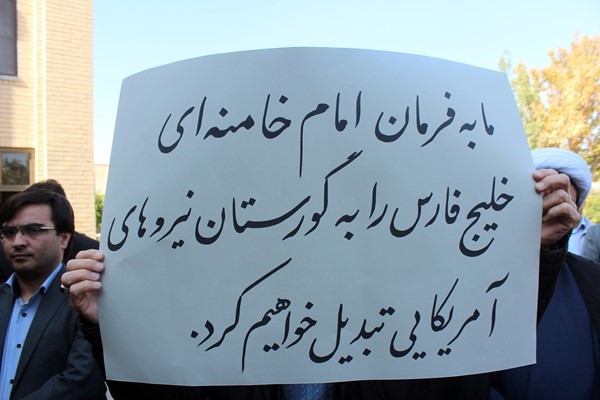 ما به فرمان امام خامنه‌ای
خلیج فارس را به گورستان نیروهای
آمریکایی تبدیل خواهیم کرد.